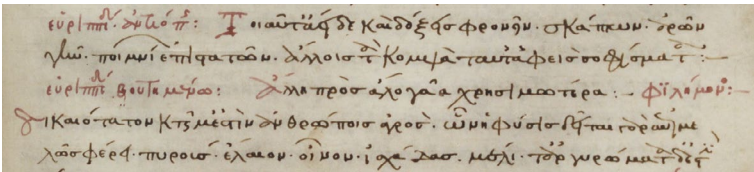 εὐριπίδ ἀντιόπ: Τοιαῦτ ἄειδε καὶ δόξεις φρονεῖν. σκάπτων. ἀρῶν
γῆν. ποιμνί ἐπιστατῶν. ἄλλοις τὰ κομψὰ ταῦτ ἀφεὶς σοφίσματ:
εὐριπίδ βουτημένω: ἄλλη πρὸς ἄλλο γαῖα χρησιμωτέρα: φιλήμονος:
Δικαιότατον κτῆμ ἐστὶν ἀνθρώποις ἀγρός. ὧν ἡ φύσις δεῖται
λῶς φέρει. πυρούς. ἔλαιον. οἶνον. ἰσχάδας. μέλι.